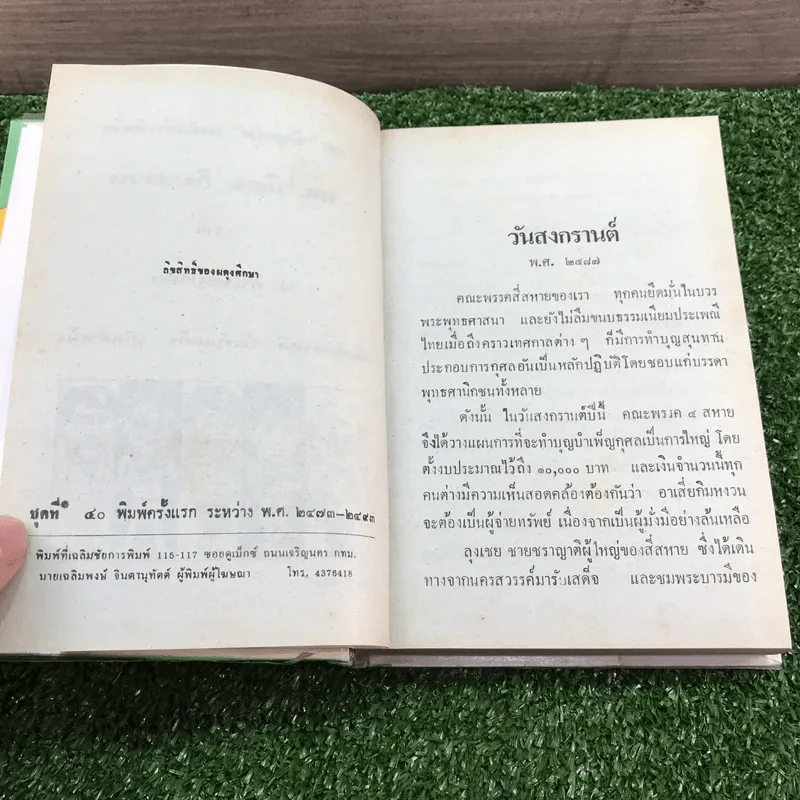 ลิขสิทธิ์ของผดุงศึกษา
ชุดที่ ๔๐ พิมพ์ครั้งแรก ระหว่าง พ.ศ. ๒๔๗๓-๒๔๙๓
พิมพ์ที่เฉลิมชัยการพิมพ์ 115-117 ซอยดูเม็กซ์ ถนนเจริญนคร กทม.
นายเฉลิมพงษ์ จินดานุทัตต์ ผู้พิมพ์ผู้โฆษณา โทร. 4376418
วันสงกรานต์
พ.ศ. ๒๔๘๗
คณะพรรคสี่สหายของเรา ทุกคนยึดมั่นในบวร
พระพุทธศาสนา และยังไม่ลืมขนบธรรมเนียมประเพณี
ไทยเมื่อถึงคราวเทศกาลต่าง ๆ ก็มีการทำบุญสุนทาน
ประกอบการกุศลอันเป็นหลักปฏิบัติโดยชอบแก่บรรดา
พุทธศานิกชนทั้งหลาย
ดังนั้น ในวันสงกรานต์ปีนี้ คณะพรรค ๔ สหาย
จึงได้วางแผนการที่จะทำบุญบำเพ็ญกุศลเป็นการใหญ่ โดย
ตั้งงบประมาณไว้ถึง ๑๐,๐๐๐ บาท และเงินจำนวนนี้ทุก
คนต่างมีความเห็นสอดคล้องต้องกันว่า อาเสี่ยกิมหงวน
จะต้องเป็นผู้จ่ายทรัพย์ เนื่องจากเป็นผู้มั่งมีอย่างล้นเหลือ
ลุงเชย ชายชราญาติผู้ใหญ่ของสี่สหาย ซึ่งได้เดิน
ทางจากนครสวรรค์มารับเสด็จ และชมพระบารมีของ